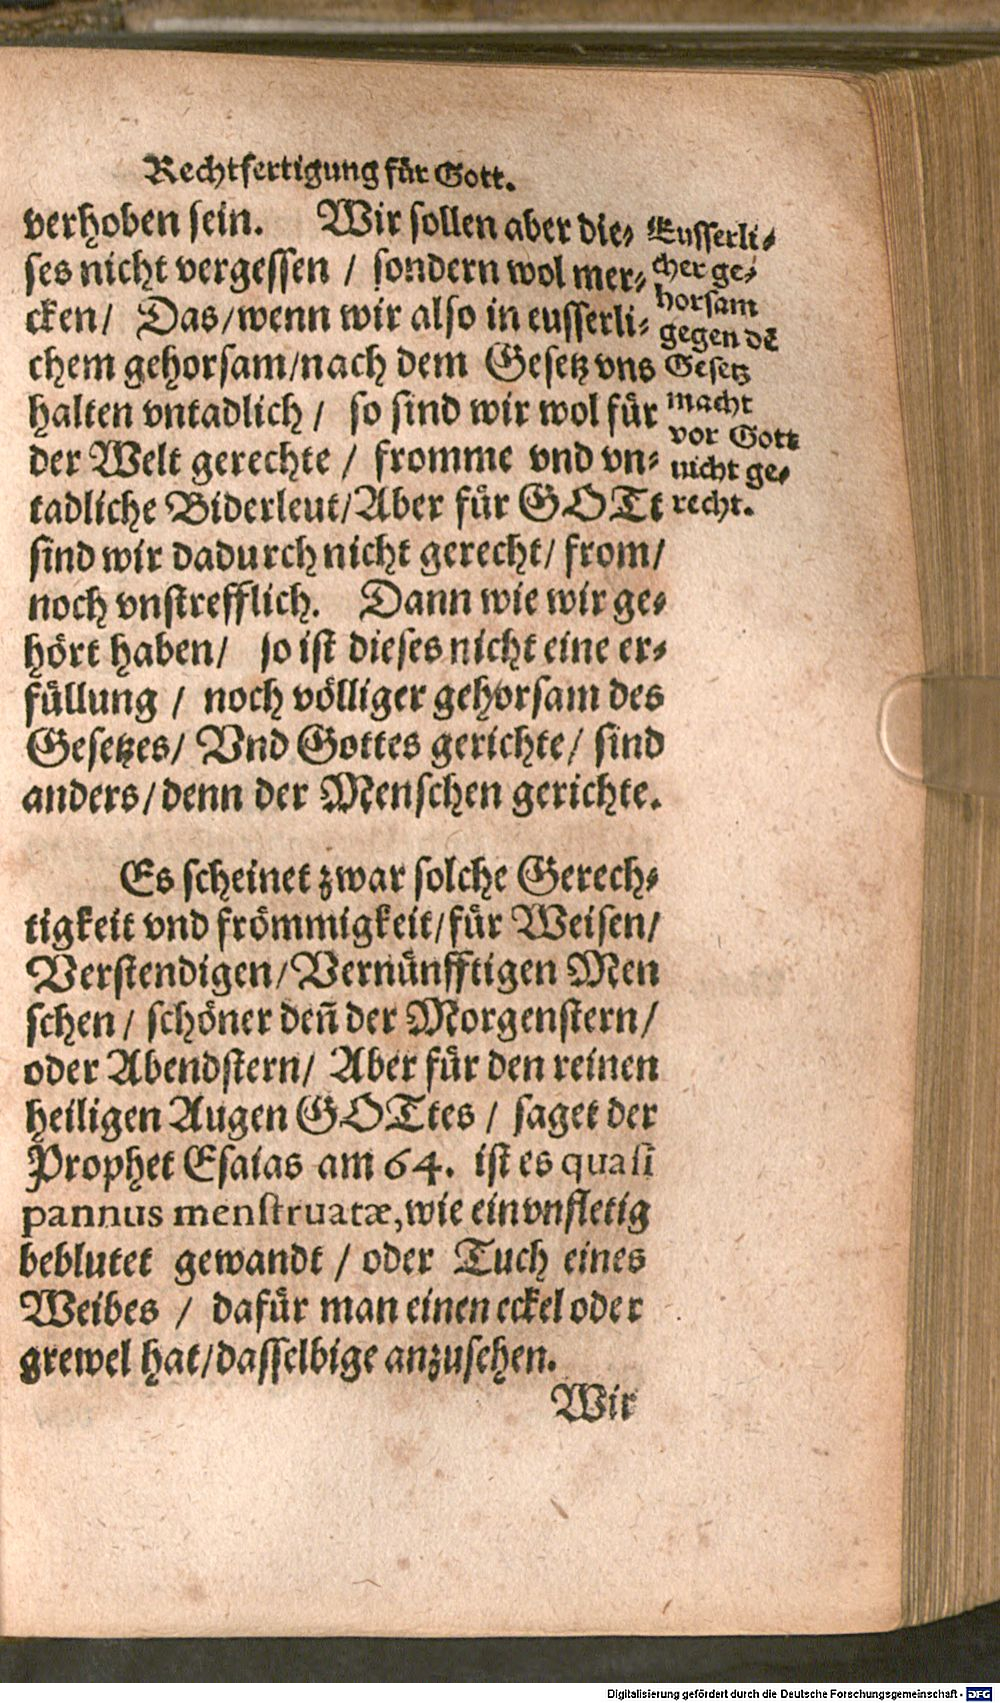 Rechtfertigung für Gott.
verhoben sein. Wir sollen aber die-
ses nicht vergessen / sondern wol mer-
cken/ Das/wenn wir also in eusserli-
chem gehorsam/nach dem Gesetz vns
halten vntadlich / so sind wir wol für
der Welt gerechte / fromme vnd vn-
tadliche Biderleut/Aber für GOTt
sind wir dadurch nicht gerecht/ from/
noch vnstrefflich. Dann wie wir ge-
hört haben/ so ist dieses nicht eine er-
füllung / noch völliger gehorsam des
Gesetzes/ Vnd Gottes gerichte/ sind
anders/denn der Menschen gerichte.
Eusserli-
cher ge-
horsam
gegen dē
Gesetz
macht
vor Gott
nicht ge-
recht.
Es scheinet zwar solche Gerech-
tigkeit vnd frömmigkeit/für Weisen/
Verstendigen/Vernünfftigen Men
schen/ schöner deñ der Morgenstern/
oder Abendstern/ Aber für den reinen
heiligen Augen GOTtes / saget der
Prophet Esaias am 64. ist es quasi
pannus menstruatæ, wie ein vnfletig
beblutet gewandt / oder Tuch eines
Weibes / dafür man einen eckel oder
grewel hat/dasselbige anzusehen.
Wir
Digitalisierung gefördert durch die Deutsche Forschungsgemeinschaft - DFG